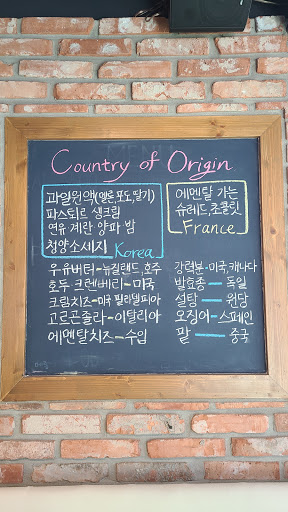 Country of Origin
과일원액(멜론,포도,딸기)
파스퇴르 생크림
연유 계란 양파 밤
청양소세지 Korea
에멘탈 가는
슈레드,초콜릿
France
우유버터-뉴질랜드,호주
호두 크렌베리-미국
크림치즈-미국 필라델피아
고르곤졸라-이탈리아
에멘탈치즈-수입
강력분-미국,캐나다
발효종-독일
설탕-원당
오징어-스페인
팥-중국